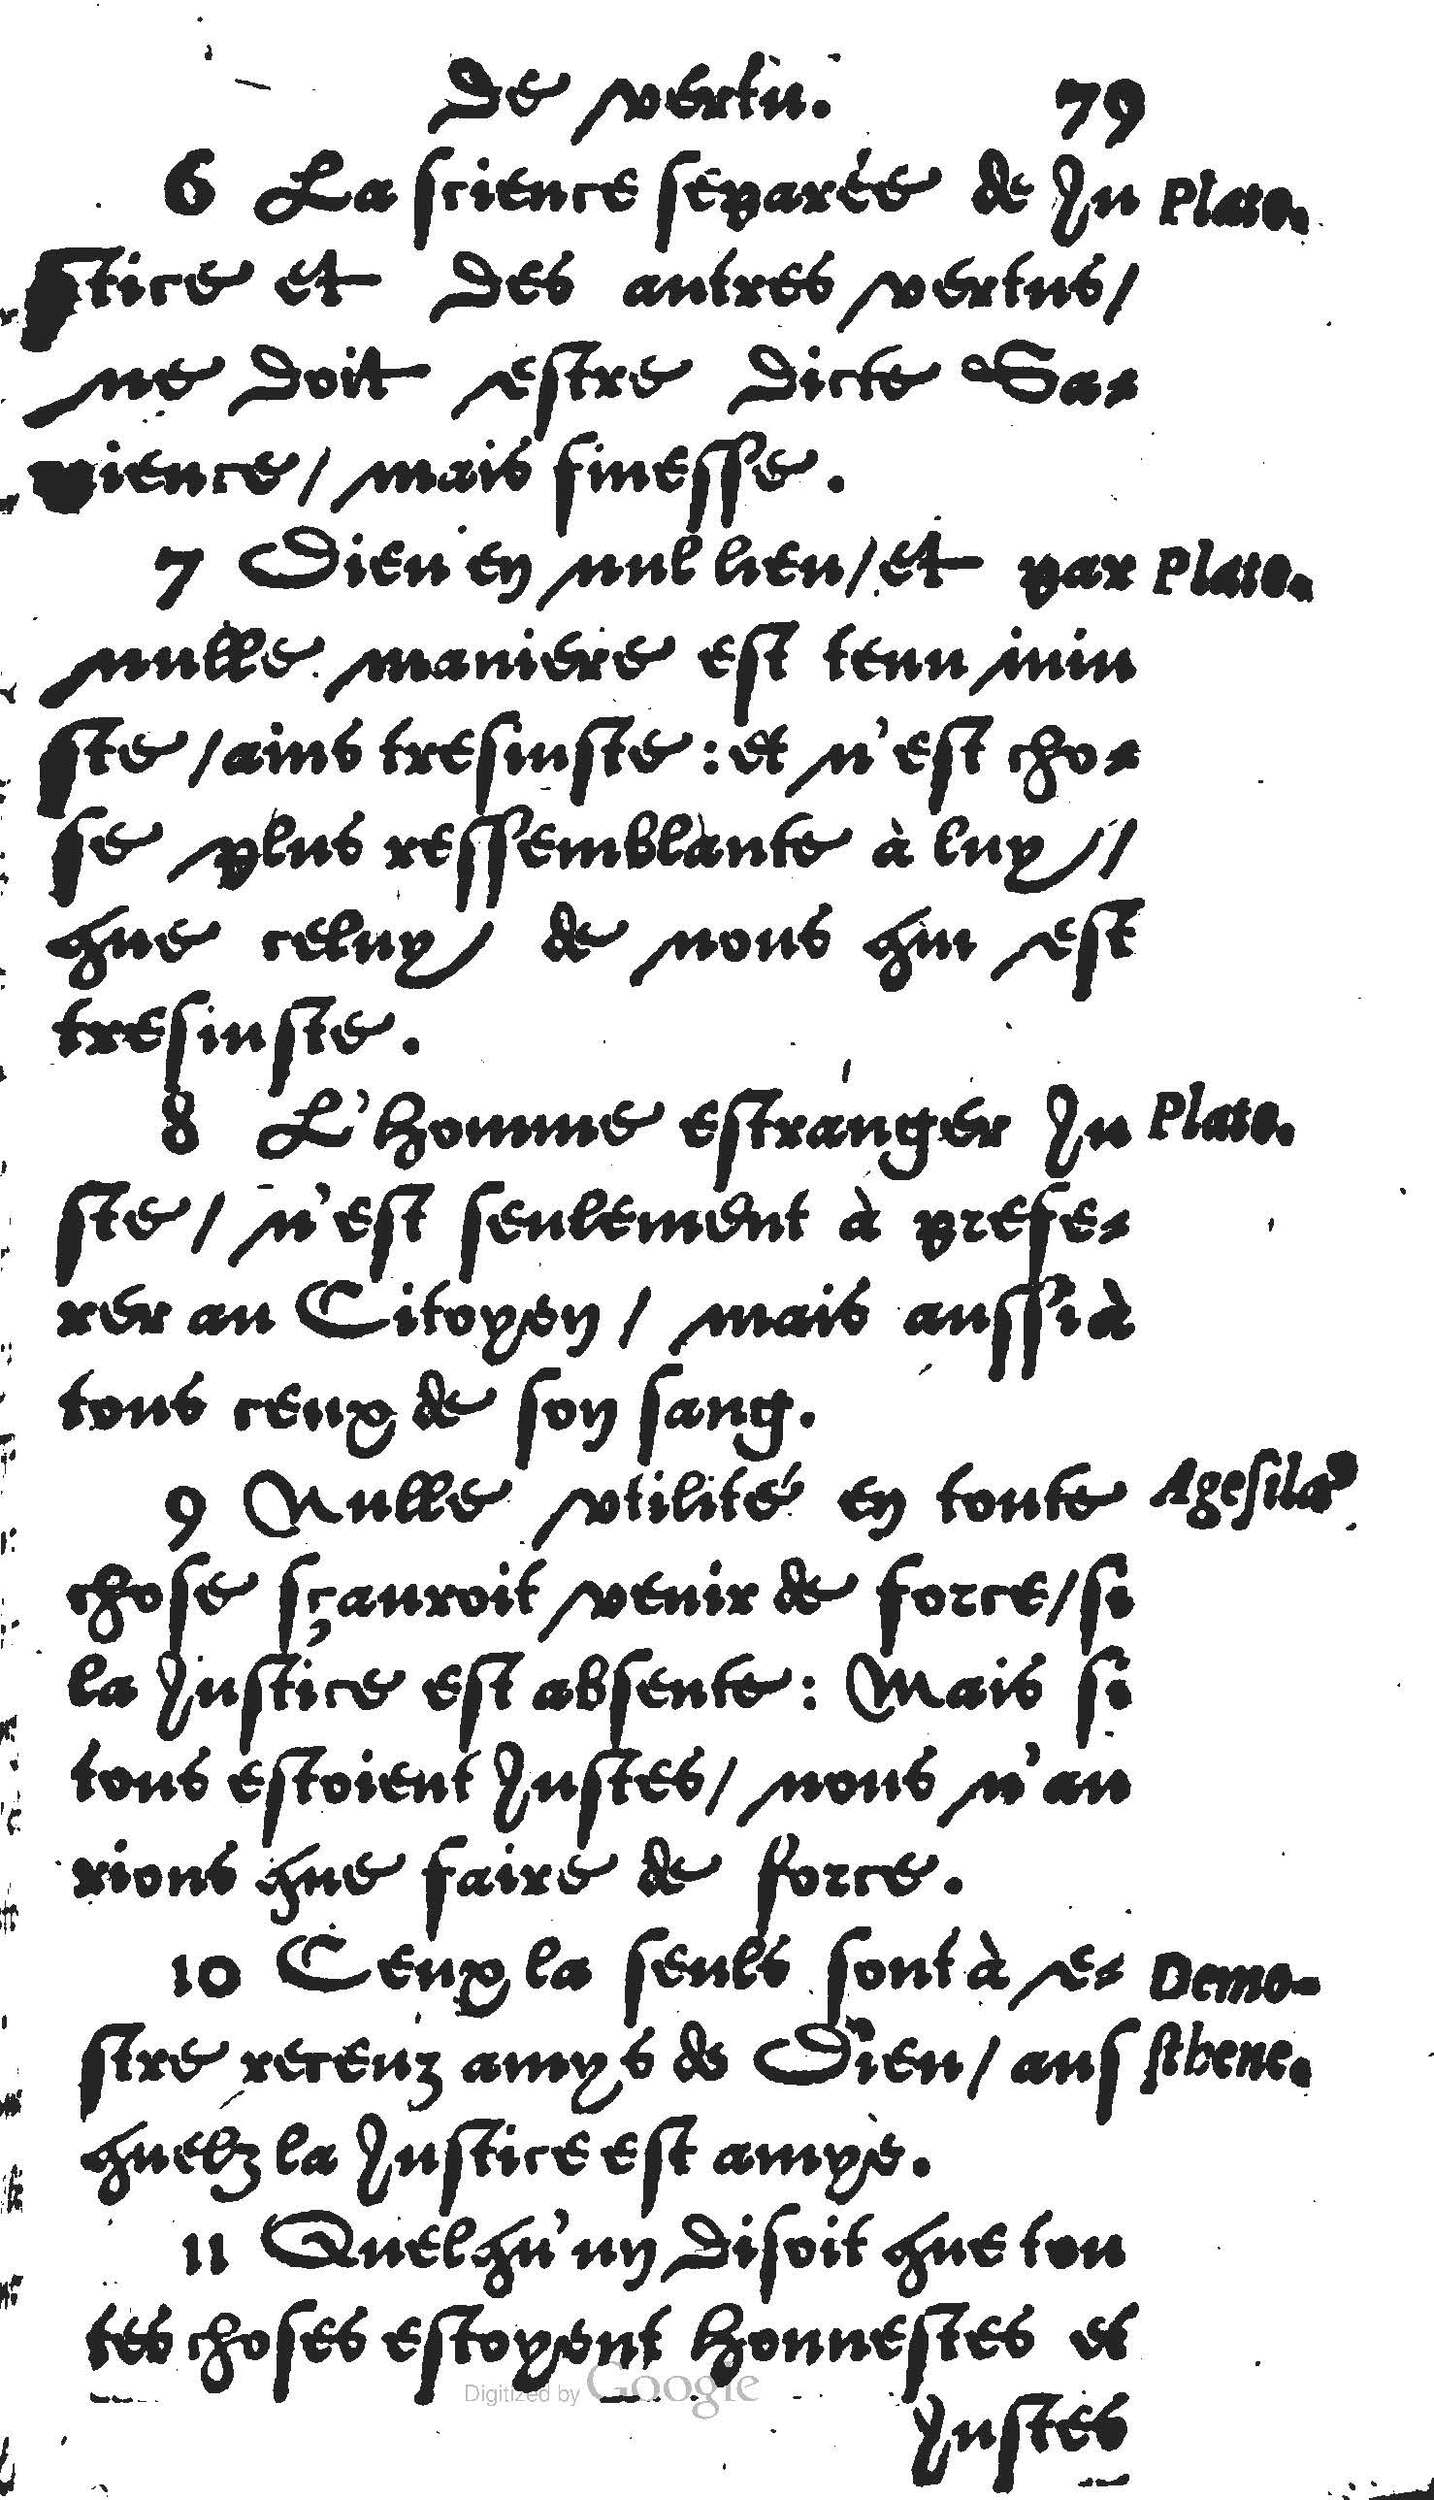 De vertu. 79
6 La science separée de Ju Plato.
stice et des autres vertus/
ne doit estre dicte Sa-
pience/ mais finesse.
7 Dieu en nul lieu/ et par Plato.
nulle maniere est tenu iniu
ste/ ains tresiuste: et n'est cho-
se plus ressemblante à luy/
que celuy de nous qui est
tresiuste.
8 L'homme estranger Ju Plato.
ste/ n'est seulement à prefe-
rer au Citoyen/ mais aussi à
tous ceux de son sang.
9 Nulle vtilité en toute Agesila⁹
chose sçauroit venir de force/ si
la Justice est absente: Mais si
tous estoient Justes/ nous n'au
rions que faire de force.
10 Ceux la seuls sont à e- Demo-
stre receuz amys de Dieu/ aus sthene.
quelz la Justice est amye.
11 Quelqu'un disoit que tou
tes choses estoyent honnestes et
Digitized by Google
Justes